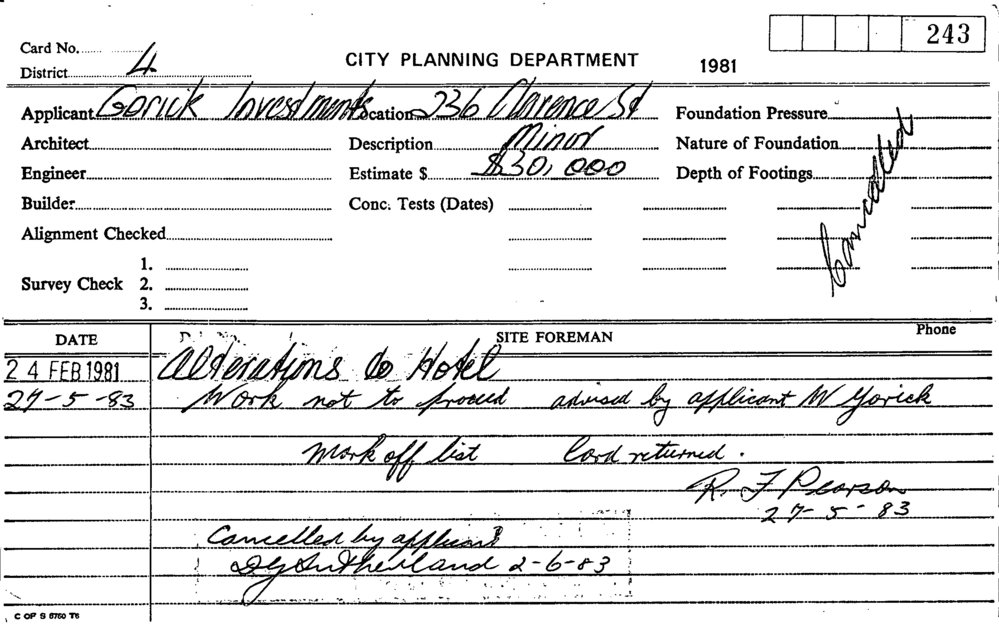 243
Card No.
CITY PLANNING DEPARTMENT 1981
District 4
Applicant Gorick Investments Location 236 Clarence St Foundation Pressure
Architect Description Minor Nature of Foundation
Engineer Estimate $ $30,000 Depth of Footings
Cancelled
Builder Conc. Tests (Dates)
Alignment Checked
1.
Survey Check 2.
3.
DATE SITE FOREMAN Phone
24 FEB 1981 Alterations to Hotel
27-5-83 Work not to proceed advised by applicant W Gorick
Mark off list Card returned.
R. F Pearson
27-5-83
Cancelled by applicant
DG Sutherland 2-6-83
C OF S 6750 T6